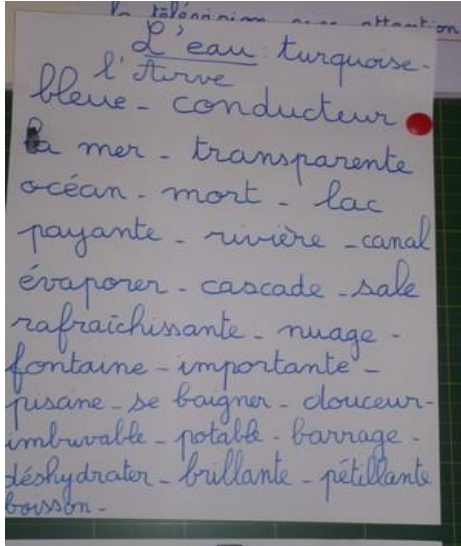 la télévision avec attention
L'eau : turquoise -
l'Arve
bleue - conducteur
la mer - transparente
océan - mort - lac
payante - rivière - canal
évaporer - cascade - sale
rafraîchissante - nuage -
fontaine - importante -
piscine - se baigner - douceur -
imbuvable - potable - barrage -
déshydrater - brillante - pétillante
boisson -